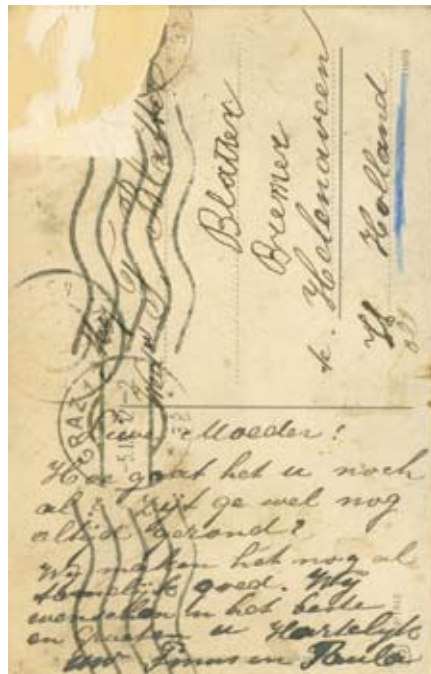 Blatter
Bremer
Helenaveen
Holland
GRAZ
Lieve Moeder!
Hoe gaat het u noch
al? Zijt ge wel nog
altijd gezond?
Wij maken het nog al
tamelijk goed. Wij
wenschen u het beste
en groeten u Hartelijk
uw en Paula